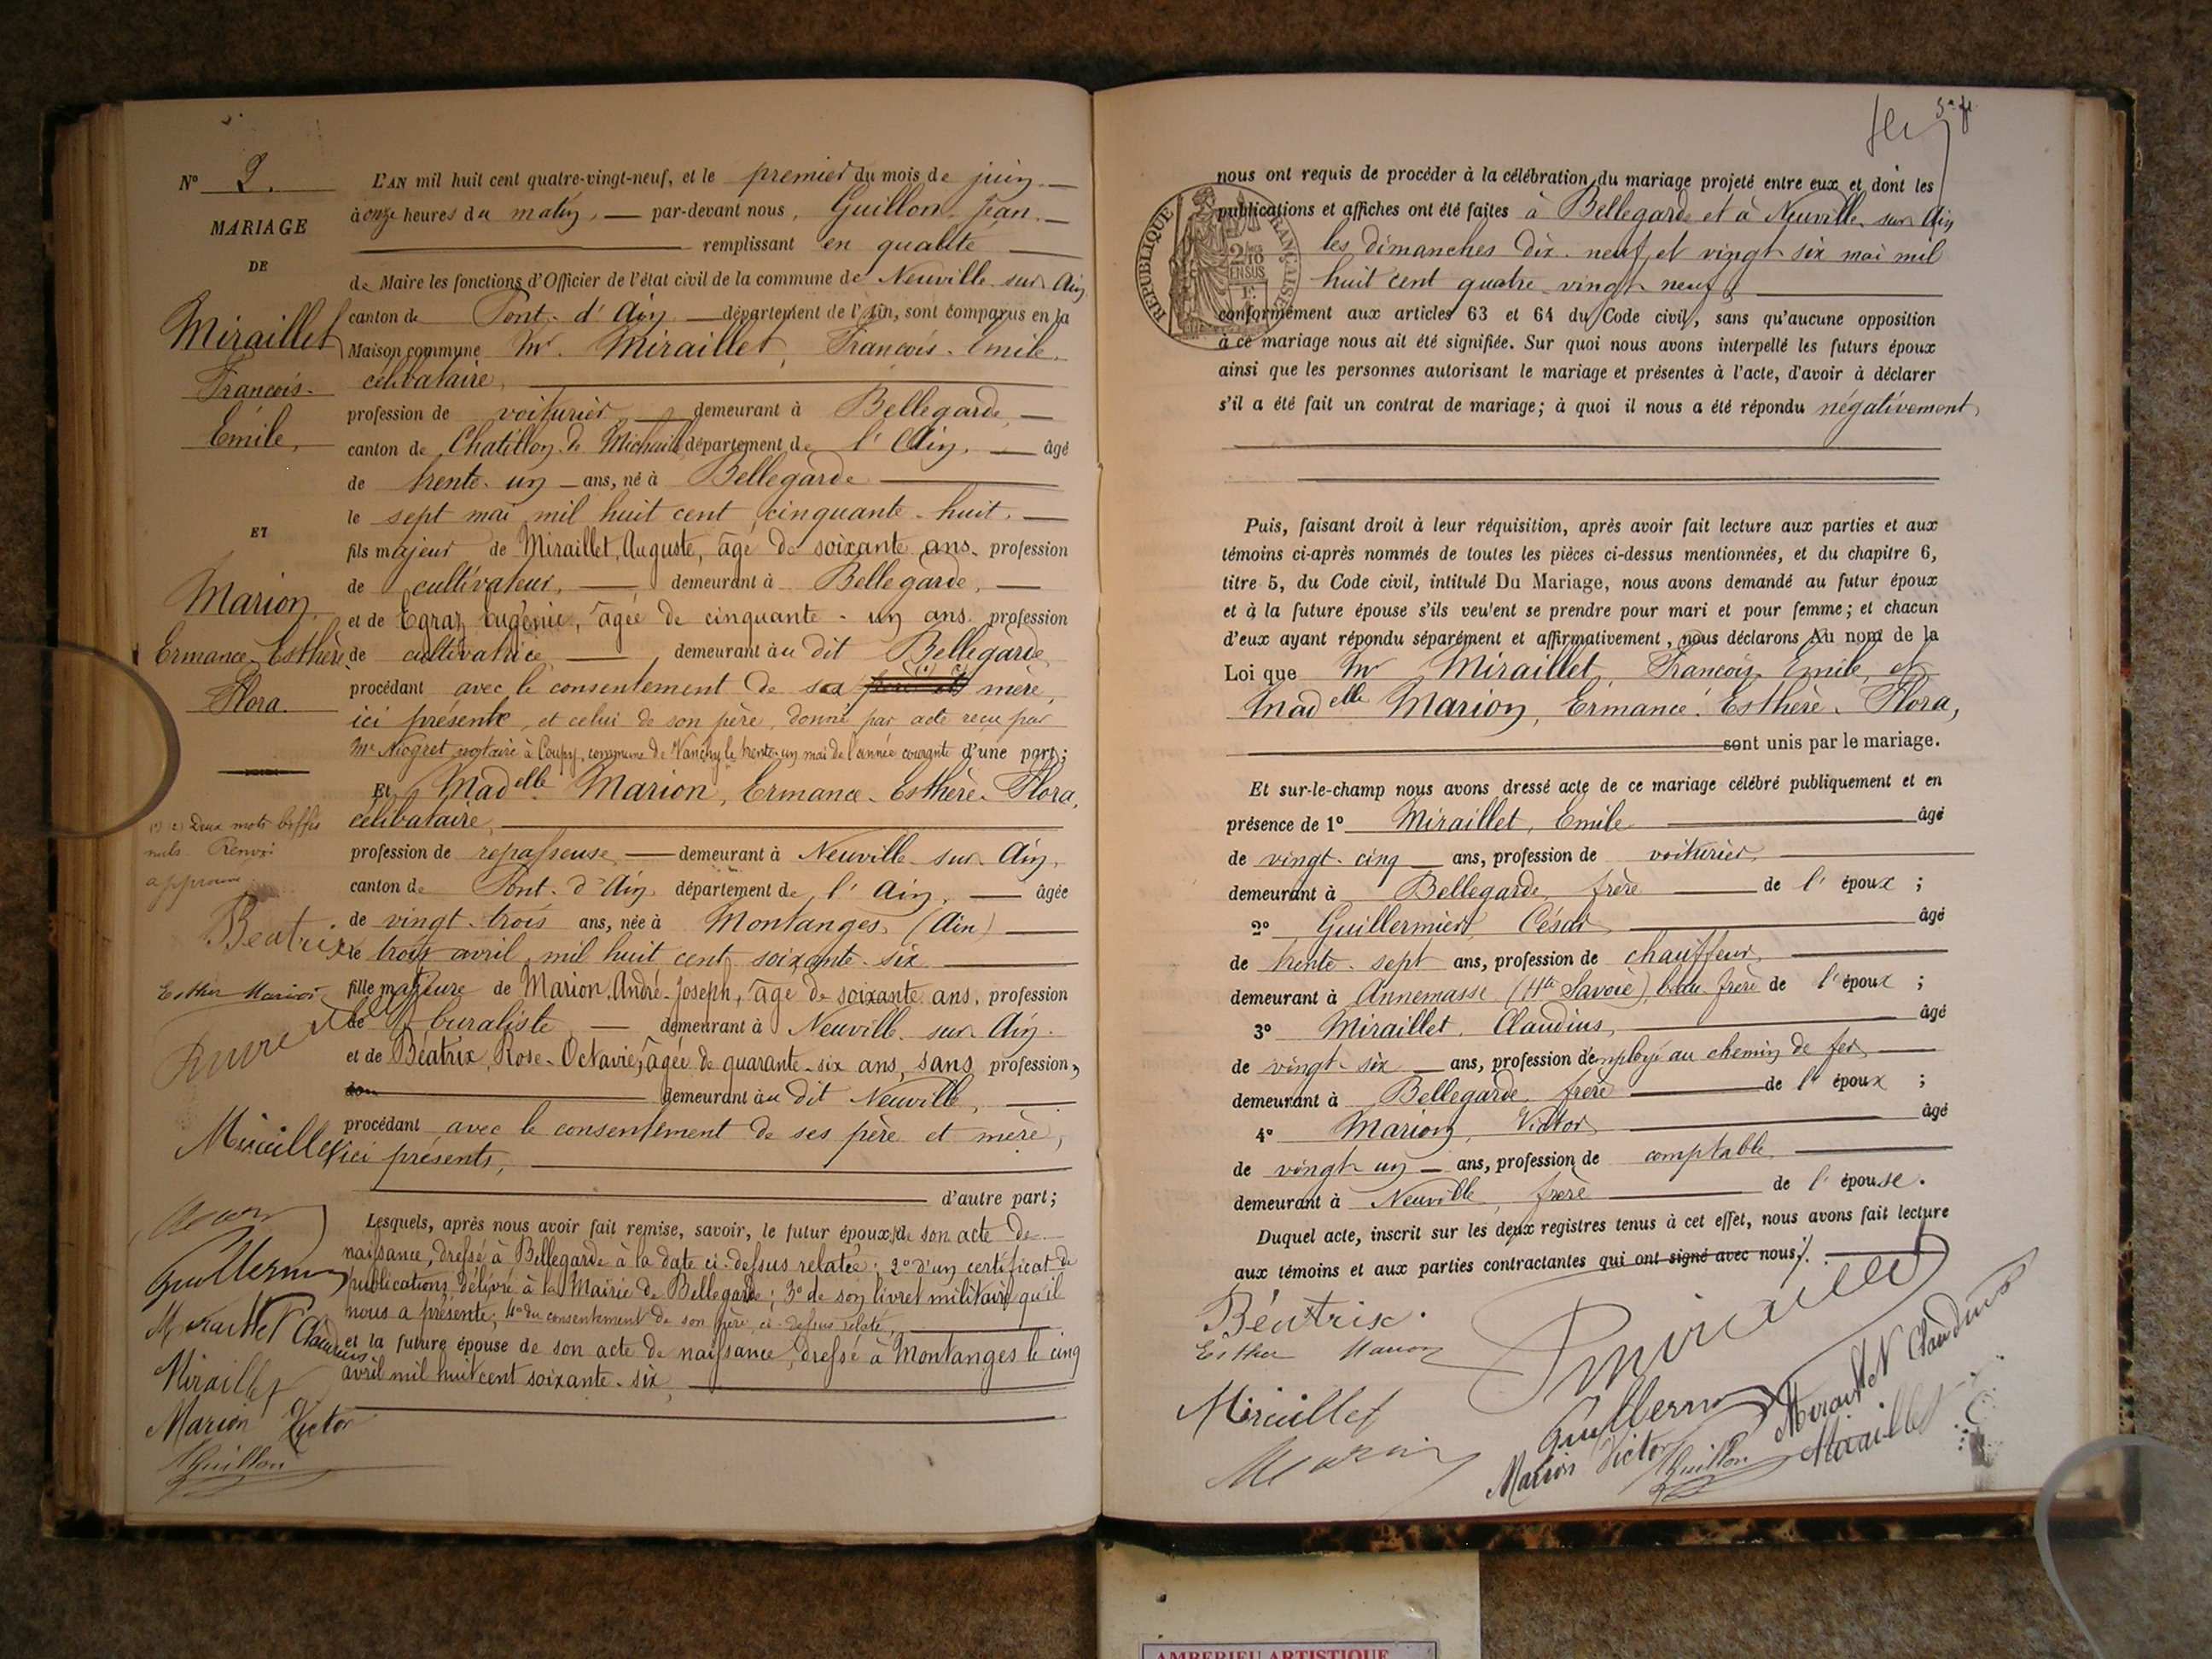 N° 2.
MARIAGE
DE
Miraillet
François-
Émile,
ET
Marion,
Ermance-Esthère-
Flora.
(1) (2) Deux mots biffés
nuls. Renvoi
approuvé
Béatrix
Esther Marion
Miraillet
Guillerm
Miraillet Claudius
Miraillet
Marion Victor
Guillon
L'AN mil huit cent quatre-vingt-neuf, et le premier du mois de juin.
à onze heures du matin, par-devant nous, Guillon Jean.
remplissant en qualité
de Maire les fonctions d'Officier de l'état civil de la commune de Neuville-sur-Ain
canton de Pont-d'Ain département de l'Ain, sont comparus en la
Maison commune Mr. Miraillet, François-Emile,
célibataire,
profession de voiturier, demeurant à Bellegarde,
canton de Chatillon-de-Michaille département de l'Ain, âgé
de trente-un ans, né à Bellegarde
le sept mai mil huit cent cinquante-huit,
fils majeur de Miraillet, Auguste, âgé de soixante ans, profession
de cultivateur, demeurant à Bellegarde,
et de Egraz Eugénie, âgée de cinquante-un ans, profession
de cultivatrice, demeurant au dit Bellegarde,
procédant avec le consentement de sa mère,
ici présente, et celui de son père, donné par acte reçu par
Me Nicgret notaire à Coupy, commune de Vanchy le trente-un mai de l'année courante d'une part;
Et Madelle Marion, Ermance-Esthère-Flora,
célibataire,
profession de repasseuse, demeurant à Neuville-sur-Ain,
canton de Pont-d'Ain, département de l'Ain, âgée
de vingt-trois ans, née à Montanges (Ain)
le trois avril mil huit cent soixante-six
fille majeure de Marion, André-Joseph, âgé de soixante ans, profession
de buraliste demeurant à Neuville-sur-Ain.
et de Béatrix, Rose-Octavie, âgée de quarante-six ans, sans profession,
demeurant au dit Neuville,
procédant avec le consentement de ses père et mère,
ici présents,
d'autre part;
Lesquels, après nous avoir fait remise, savoir, le futur époux, de son acte de
naissance, dressé à Bellegarde à la date ci-dessus relatée; 2° d'un certificat de
publications délivré à la Mairie de Bellegarde; 3° de son livret militaire qu'il
nous a présenté; 4° du consentement de son père, ci-dessus relaté,
et la future épouse de son acte de naissance, dressé à Montanges le cinq
avril mil huit cent soixante-six,
5e f.
RÉPUBLIQUE FRANÇAISE
2/10 EN SUS
nous ont requis de procéder à la célébration du mariage projeté entre eux et dont les
publications et affiches ont été faites à Bellegarde et à Neuville-sur-Ain
les dimanches dix-neuf et vingt-six mai mil
huit cent quatre-vingt-neuf,
conformément aux articles 63 et 64 du Code civil, sans qu'aucune opposition
à ce mariage nous ait été signifiée. Sur quoi nous avons interpellé les futurs époux
ainsi que les personnes autorisant le mariage et présentes à l'acte, d'avoir à déclarer
s'il a été fait un contrat de mariage; à quoi il nous a été répondu négativement,
Puis, faisant droit à leur réquisition, après avoir fait lecture aux parties et aux
témoins ci-après nommés de toutes les pièces ci-dessus mentionnées, et du chapitre 6,
titre 5, du Code civil, intitulé Du Mariage, nous avons demandé au futur époux
et à la future épouse s'ils veulent se prendre pour mari et pour femme; et chacun
d'eux ayant répondu séparément et affirmativement, nous déclarons Au nom de la
Loi que Mr Miraillet, François-Emile, et
Madelle Marion, Ermance-Esthère-Flora,
sont unis par le mariage.
Et sur-le-champ nous avons dressé acte de ce mariage célébré publiquement et en
présence de 1° Miraillet, Emile âgé
de vingt-cinq ans, profession de voiturier,
demeurant à Bellegarde, frère de l'époux;
2° Guillermier, César, âgé
de trente-sept ans, profession de chauffeur,
demeurant à Annemasse (Hte Savoie), beau-frère de l'époux;
3° Miraillet, Claudius, âgé
de vingt-six ans, profession d'employé au chemin de fer,
demeurant à Bellegarde, frère de l'époux;
4° Marion, Victor âgé
de vingt-un ans, profession de comptable,
demeurant à Neuville, frère de l'épouse.
Duquel acte, inscrit sur les deux registres tenus à cet effet, nous avons fait lecture
aux témoins et aux parties contractantes qui ont signé avec nous ./.
Béatrix.
Esther Marion
Miraillet
Guillerm
Miraillet Claudius
Miraillet
Marion
Marion Victor
Guillon
Miraillet
AMBERIEU ARTISTIQUE